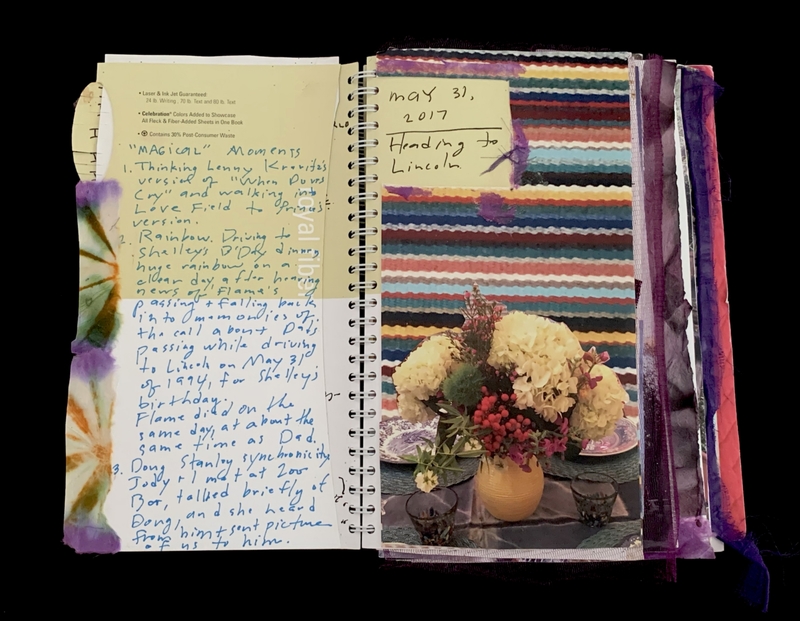 • Laser & Ink Jet Guaranteed
24 lb. Writing, 70 lb. Text and 80 lb. Text
• Celebration® Colors Added to Showcase
All Fleck & Fiber-Added Sheets in One Book
• Contains 30% Post-Consumer Waste
"MAGICAL" Moments
1. Thinking Lenny Kravitz's
version of "When Doves
Cry" and walking into
Love Field to Prince's
version.
2. Rainbow. Driving to
Shelley's B'Day dinner
huge rainbow on a
clear day after hearing
news of Flame's
passing & falling back
into mamories of
the call about Dad's
Passing while driving
to Lincoln on May 31
of 1994, for Shelley's
birthday.
Flame died on the
same day, at about the
same time as Dad.
3. Doug Stanley synchronicity
Jody & I met at Zoo
Bar, talked briefly of
Doug, and she heard
from him & sent picture
of us to him.
royal fiber
may 31,
2017
Heading to
Lincoln